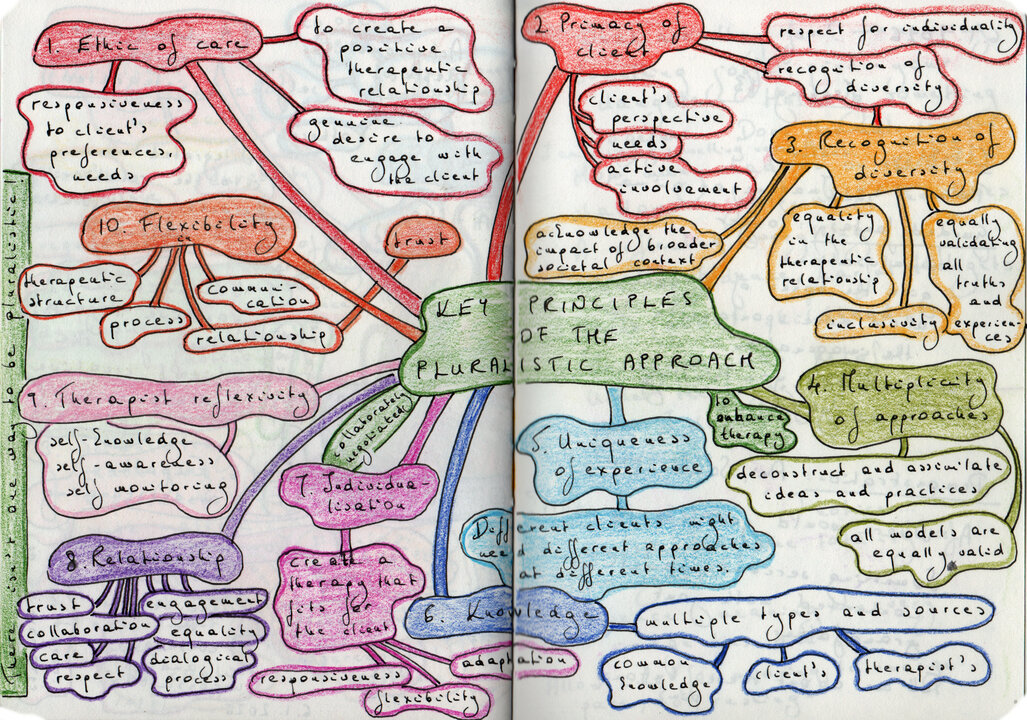 1. Ethic of care
to create a
positive
therapeutic
relationship
responsiveness
to client's
preferences,
needs
genuine
desire to
engage with
the client
2. Primacy of
client
respect for individuality
recognition of
diversity
client's
perspective
needs
active
involvement
3. Recognition of
diversity
acknowledge the
impact of broader
societal context
equality
in the
therapeutic
relationship
equally
validating
all
truths
and
experien-
ces
inclusivity
10. Flexibility
in
trust
therapeutic
structure
process
communi-
cation
relationship
KEY PRINCIPLES
OF THE
PLURALISTIC APPROACH
9. Therapist reflexivity
self-knowledge
self-awareness
self monitoring
collaboratively
negotiated
to
enhance
therapy
4. Multiplicity
of approaches
deconstruct and assimilate
ideas and practices
all models are
equally valid
5. Uniqueness
of experience
Different clients might
need different approaches
at different times.
7. Individua-
lisation
create a
therapy that
fits for
the client
responsiveness
flexibility
adaptation
8. Relationship
trust
collaboration
care
respect
engagement
equality
dialogical
process
6. Knowledge
multiple types and sources
common
knowledge
client's
therapist's
There isn't one way to be pluralistic!